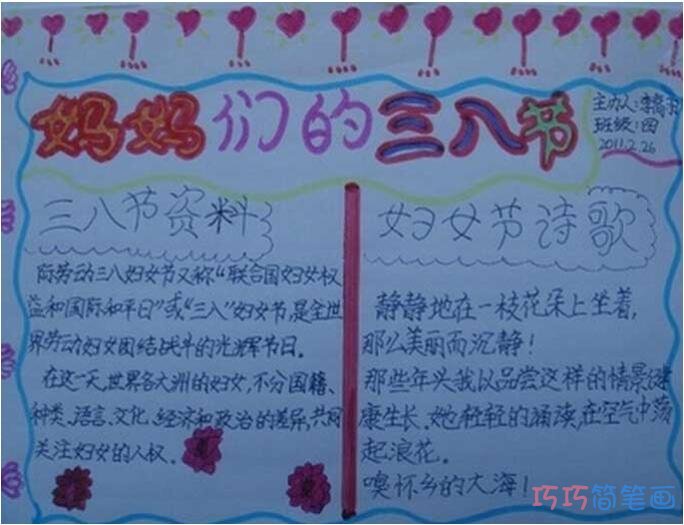 妈妈们的三八节
主办人:李
班级:四
2011.2.26
三八节资料
际劳动三八妇女节又称"联合国妇女权
益和国际和平日"或"三八"妇女节,是全世
界劳动妇女团结战斗的光辉节日。
在这一天,世界各大洲的妇女,不分国籍、
种类、语言、文化、经济和政治的差异,共同
关注妇女的人权。
妇女节诗歌
静静地在一枝花朵上坐着,
那么美丽而沉静!
那些年头我以品尝这样的情景健
康生长,她轻轻的涌读,在空气中荡
起浪花。
噢怀乡的大海!
巧巧简笔画